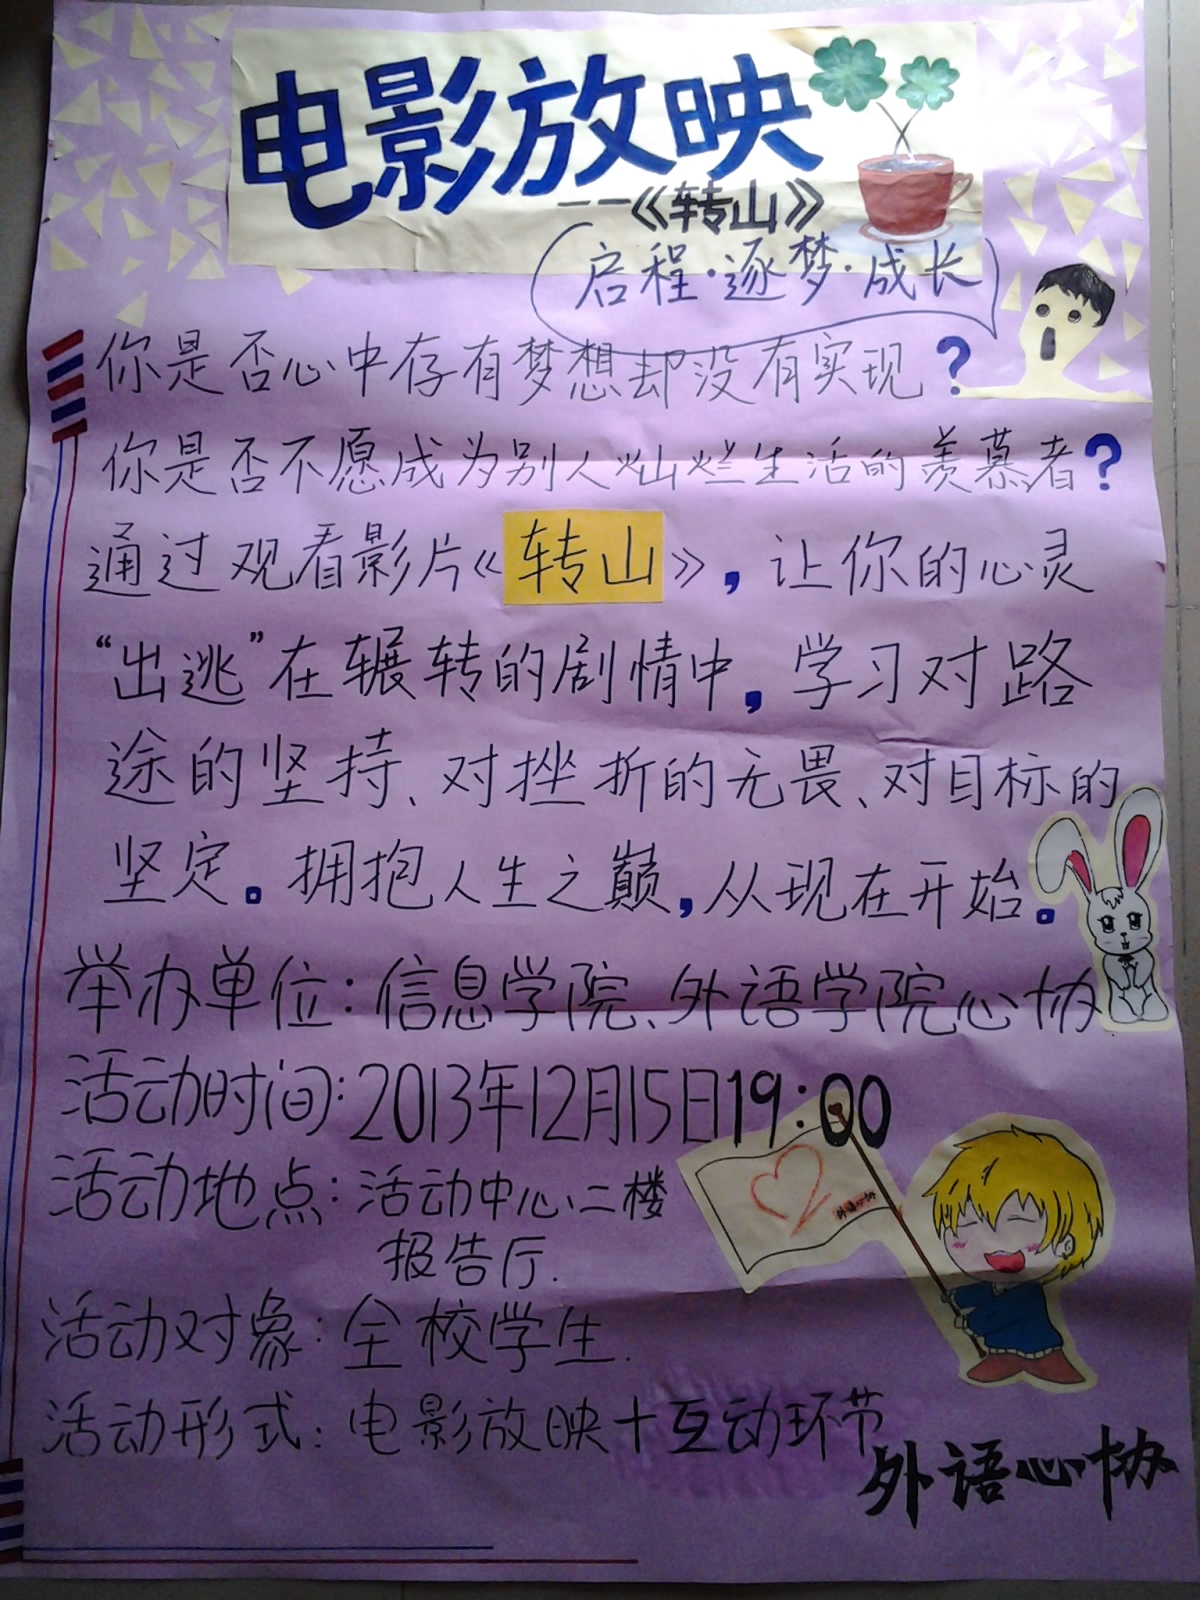 电影放映
——《转山》
启程·逐梦·成长
你是否心中存有梦想却没有实现?
你是否不愿成为别人灿烂生活的羡慕者?
通过观看影片《转山》,让你的心灵
“出逃”在辗转的剧情中,学习对路
途的坚持、对挫折的无畏、对目标的
坚定。拥抱人生之巅,从现在开始。
举办单位:信息学院、外语学院心协
活动时间:2013年12月15日19:00
活动地点:活动中心二楼
报告厅.
活动对象:全校学生.
活动形式:电影放映+互动环节
外语心协